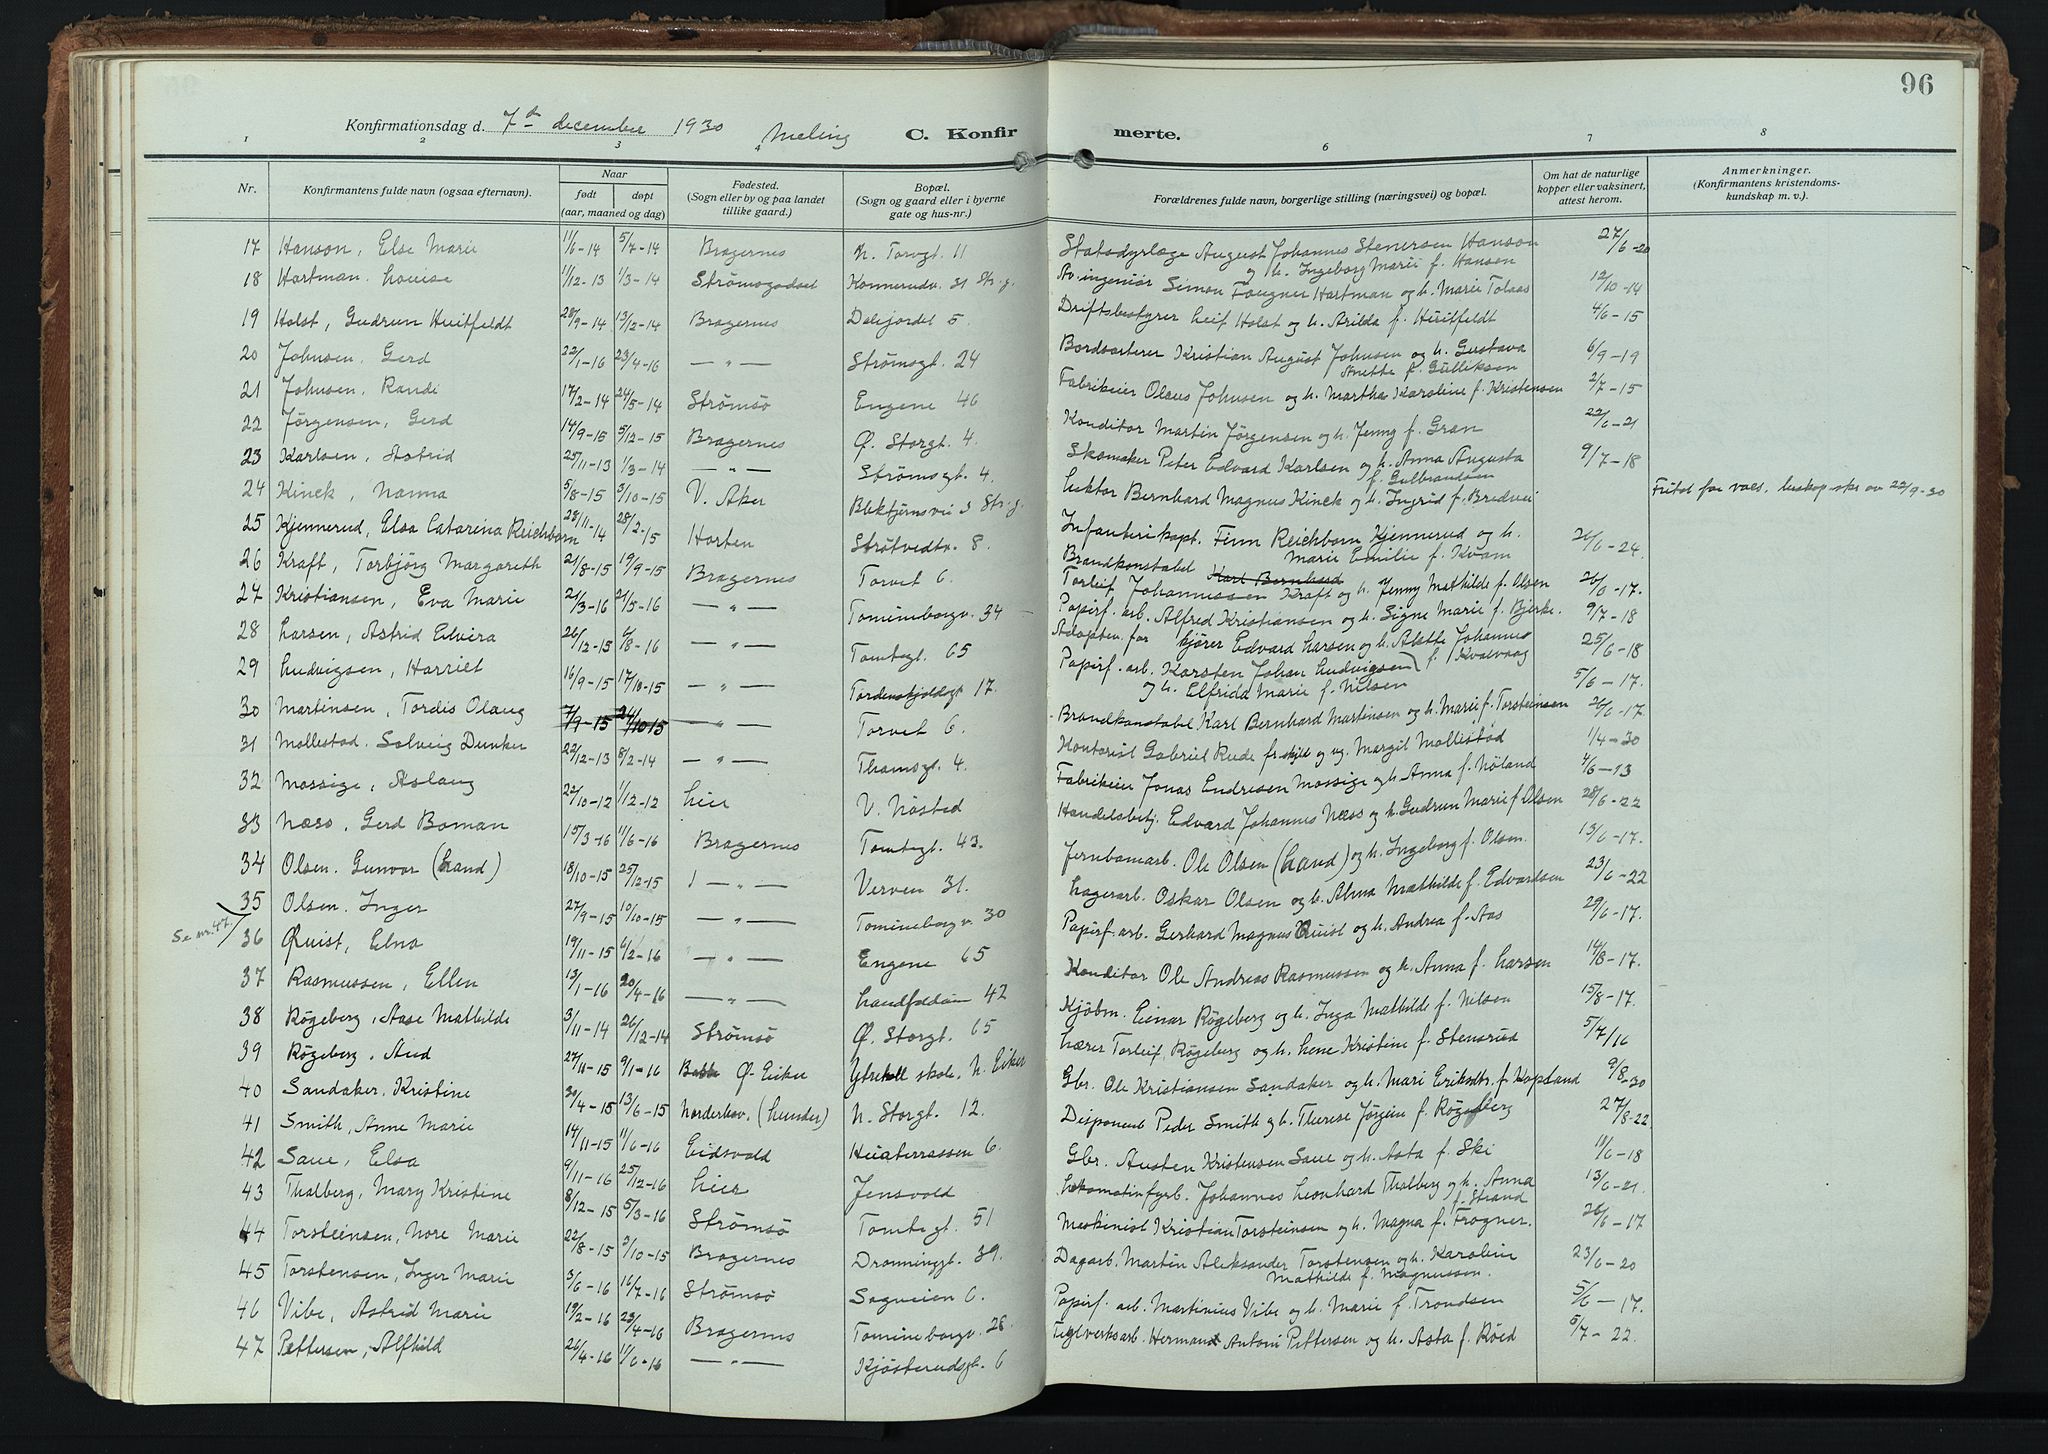 96
Konfirmationsdag d. 7de december 1930 Meling C. Konfirmerte.
1 2 3 4 6 7 8
Nr. Konfirmantens fulde navn (ogsaa efternavn). Naar født døpt (aar, maaned og dag) Fødested. (Sogn eller by og paa landet tillike gaard.) Bopæl. (Sogn og gaard eller i byerne gate og hus-nr.) Forældrenes fulde navn, borgerlige stilling (næringsvei) og bopæl. Om hat de naturlige kopper eller vaksinert, attest herom. Anmerkninger. (Konfirmantens kristendomskundskap m. v.).
17 Hanson, Else Marie 11/6-14 5/7-14 Bragernes N. Torvgt. 11 Statsdyrlæge August Johannes Stenersen Hanson og h. Ingeborg Marie f. Hansen 27/6-20
18 Hartman, Louise 11/12-13 1/3-14 Strømsgodset Konnerudv. 31 Str.g. Av.ingeniør Simon Fougner Hartman og h. Marie Tolaas 12/10-14
19 Holst, Gudrun Huitfeldt 28/9-14 13/12-14 Bragernes Dalefjordet 5. Driftsbestyrer Leif Holst og h. Arilda f. Huitfeldt 4/6-15
20 Johnsen, Gerd 22/1-16 23/4-16 — " — Strømsgt. 24 Bordsorterer Kristian August Johnsen og h. Gustava Anette f. Gulliksen 6/9-19
21 Johnsen, Randi 17/2-14 24/5-14 Strømsø Engene 46 Fabrikeier Olaus Johnsen og h. Martha Karoline f. Kristensen 2/7-15
22 Jørgensen, Gerd 14/9-15 5/12-15 Bragernes Ø. Storgt. 4. Konditor Martin Jørgensen og h. Jenny f. Gran 22/6-21
23 Karlsen, Astrid 25/11-13 1/3-14 — " — Strømsgt. 4. Skomaker Peter Edvard Karlsen og h. Anna Augusta f. Gulbrandsen 9/7-18
24 Kinck, Nanna 5/8-15 3/10-15 V. Aker Str.g. Lektor Bernhard Magnus Kinck og h. Ingrid f. Bredvei Fritat for vacs.
25 Kjennerud, Elsa Catarina Reichborn 28/11-14 28/2-15 Horten Strøtvedtv. 8. Infanterikapt. Finn Reichborn Kjennerud og h. Marie Emilie f. Kvam 26/6-24.
26 Kraft, Torbjørg Margareth 21/8-15 19/9-15 Bragernes Torvet 6. Brandkonstabel Karl Bernhard Torleif Johannessen Kraft og h. Jenny Mathilde f. Olsen 26/6-17.
27 Kristiansen, Eva Marie 21/3-16 21/5-16 — " — Tomineborgv. 34 Papirf. arb. Alfred Kristiansen og h. Signe Marie f. Bjerke. 9/7-18
28 Larsen, Astrid Elvira 26/12-15 6/8-16 — " — Tomtegt. 65 Adoptiv. for kjører Edvard Larsen og h. Alette Johannes f. Kvalvaag 25/6-18
29 Ludvigsen, Harriet 16/9-15 17/10-15 — " — Tordenskjoldsgt 17. Papirf. arb. Karsten Johan Ludvigsen og h. Elfrida Marie f. Nilsen 5/6-17.
30 Martinsen, Tordis Olaug 7/9-15 24/10-15 — " — Torvet 6. Brandkonstabel Karl Bernhard Martinsen og h. Marie f. Torsteinsen 26/6-17.
31 Mollestad. Solveig Dunker 22/12-13 8/2-14 — " — Thamsgt. 4. Kontorist Gabriel Rude fr.skilt og ug. Margit Mollestad 1/4-30
32 Mossige, Aslaug 22/10-12 1/12-12 Lier V. Nøsted Fabrikeier Jonas Endresen Mossige og h. Anna f. Nøland 4/6-13
33 Næss, Gerd Boman 15/3-16 11/6-16 Bragernes Tomtegt. 43. Handelsbetj. Edvard Johannes Næss og h. Gudrun Marie f. Olsen 28/6-22
34 Olsen. Gunvor (Lund) 18/10-15 25/12-15 — " — Verven 31. Jernbanearb. Ole Olsen (Lund) og h. Ingeborg f. Olsen. 13/6-17.
35 Olsen. Inger 27/9-15 10/10-15 — " — Tomineborgv. 30 Lagerarb. Oskar Olsen og h. Alma Mathilde f. Edvardsen 23/6-22
Se nr. 47
36 Qvist, Elna 19/11-15 6/2-16 — " — Engene 65 Papirf. arb. Gerhard Magnus Quist og h. Andrea f. Aas 29/6-17.
37 Rasmussen, Ellen 13/1-16 20/4-16 — " — Landfaldøen 42 Konditor Ole Andreas Rasmussen og h. Anna f. Larsen 14/8-17.
38 Røgeberg, Aase Mathilde 3/11-14 26/12-14 Strømsø Ø. Storgt. 65 Kjøbm. Einar Røgeberg og h. Inga Mathilde f. Nilsen 15/8-17.
39 Røgeberg, Aud 27/11-15 9/1-16 Ø. Eiker skole. N. Eiker Lærer Torleif Røgeberg og h. Lene Kristine f. Stensrud 5/7/16
40 Sandaker, Kristine 30/4-15 13/6-15 Norderhov. (Lunder) N. Storgt. 12. Gbr. Ole Kristiansen Sandaker og h. Mari Eriksdtr. f. Kopland 9/8-30
41 Smith, Anne Marie 14/11-15 11/6-16 Eidsvold Huaterrassen 6. Disponent Peder Smith og h. Therese Jørgine f. Røgeberg 27/8-22
42 Saue, Elsa 9/11-16 25/12-16 Lier Jensvold Gbr. Austen Kristensen Saue og h. Asta f. Ski 10/6-18
43 Thalberg, Mary Kristine 8/12-15 5/3-16 Strømsø Tomtegt. 51 Lokomotivfyrb. Johannes Leonhard Thalberg og h. Anna f. Strand 13/6-21.
44 Torsteinsen, Nore Marie 22/8-15 3/10-15 Bragernes Dronninggt. 39. Maskinist Kristian Torsteinsen og h. Magna f. Frogner. 26/6-17
45 Torstensen, Inger Marie 3/6-16 16/7-16 Strømsø Sagveien 6. Dagarb. Martin Aleksander Torstensen og h. Karoline Mathilde f. Magnussen. 23/6-20
46 Vibe, Astrid Marie 19/2-16 23/4-16 Bragernes Tomineborgv. 28. Papirf. arb. Martinius Vibe og h. Marie f. Trondsen 5/6-17.
47 Pettersen, Alfhild 26/4-16 11/6-16 — " — Kjøsterudgt. 6 Teglverksarb. Hermand Antoni Pettersen og h. Asta f. Røed 5/7-22.